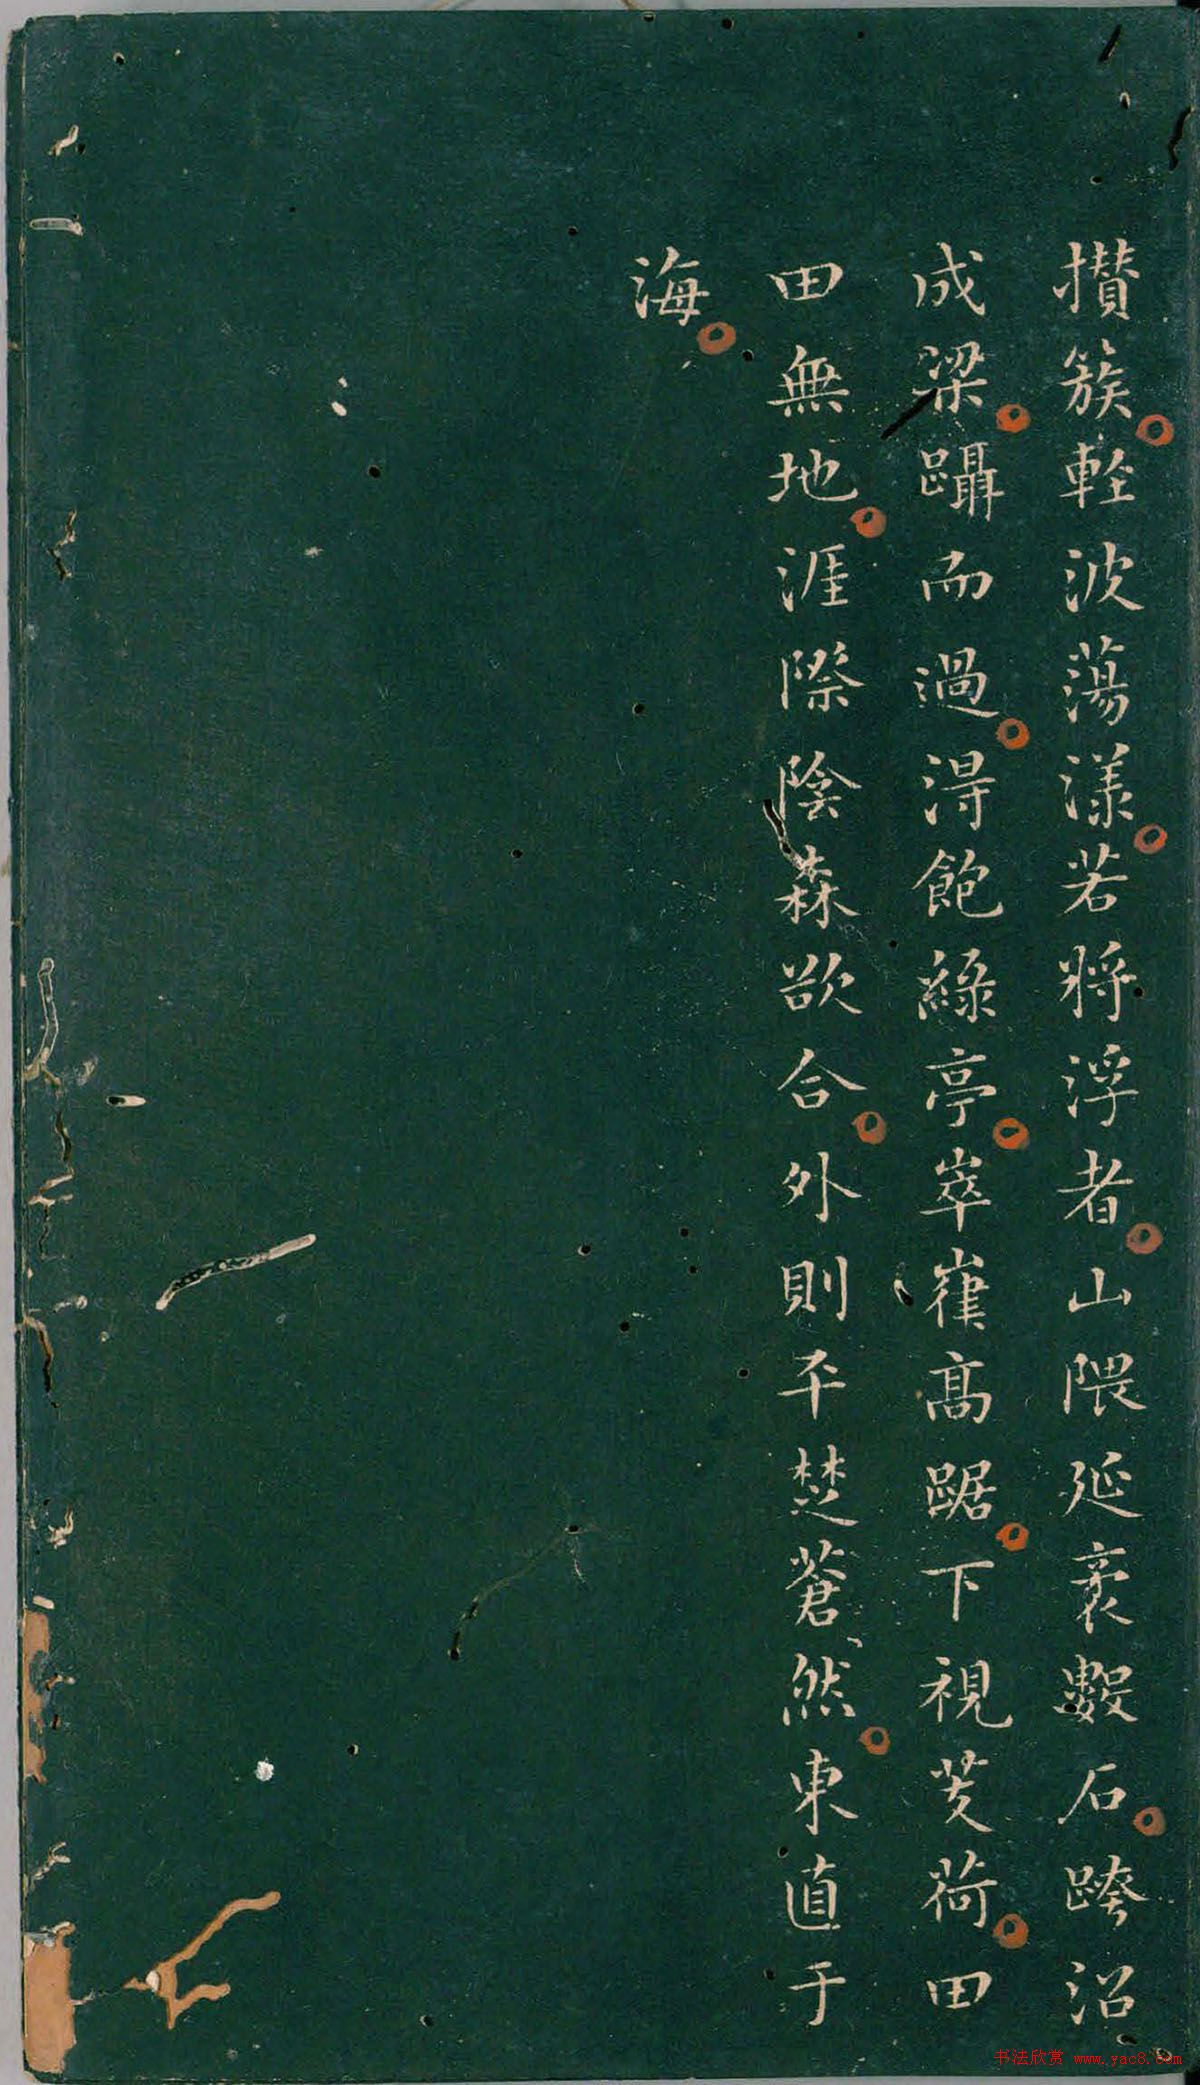 攅簇輕波蕩漾若將浮者山隈延袤數石跨沼
成梁躡而過得飽綠亭崒嵂高踞下視芰荷田
田無地涯際陰森欲合外則平楚蒼然東直于
海
书法欣赏 www.yac8.com